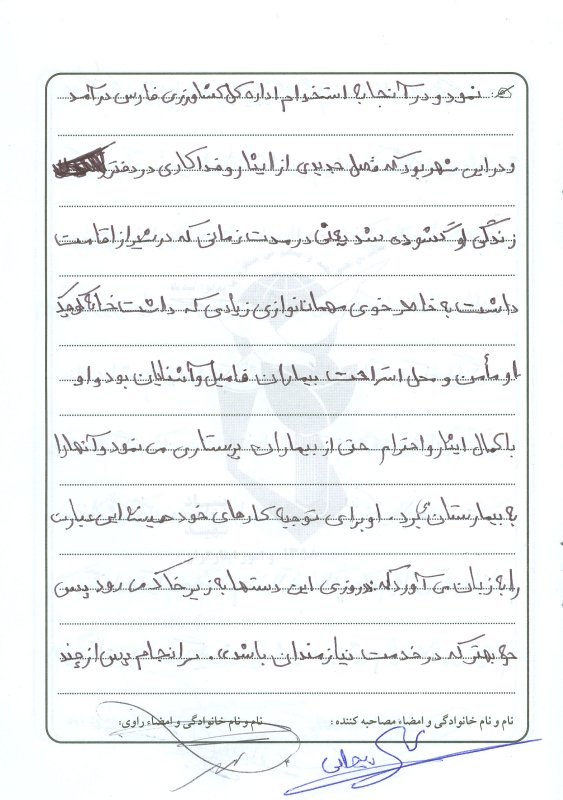 نمود و در آنجا به استخدام اداره کل کشاورزی فارس درآمد
و در این شهر بود که فصل جدیدی از ایثار و فداکاری در دفتر
زندگی او گشوده شد یعنی در مدت زمانی که در شیراز اقامت
داشت به خاطر خوی مهمانوازی زیادی که داشت خانه کوچک
او مأمن و محل استراحت بیماران فامیل و آشنایان بود و او
با کمال ایثار و احترام حتی از بیماران پرستاری می نمود و آنها را
به بیمارستان می برد. او برای توجیه کارهای خود همیشه این عبارت
را به زبان می آورد که روزی این دستها به زیر خاک می رود پس
چه بهتر که در خدمت نیازمندان باشد. سرانجام پس از چند
نام و نام خانوادگی و امضاء مصاحبه کننده : نام و نام خانوادگی و امضاء راوی: